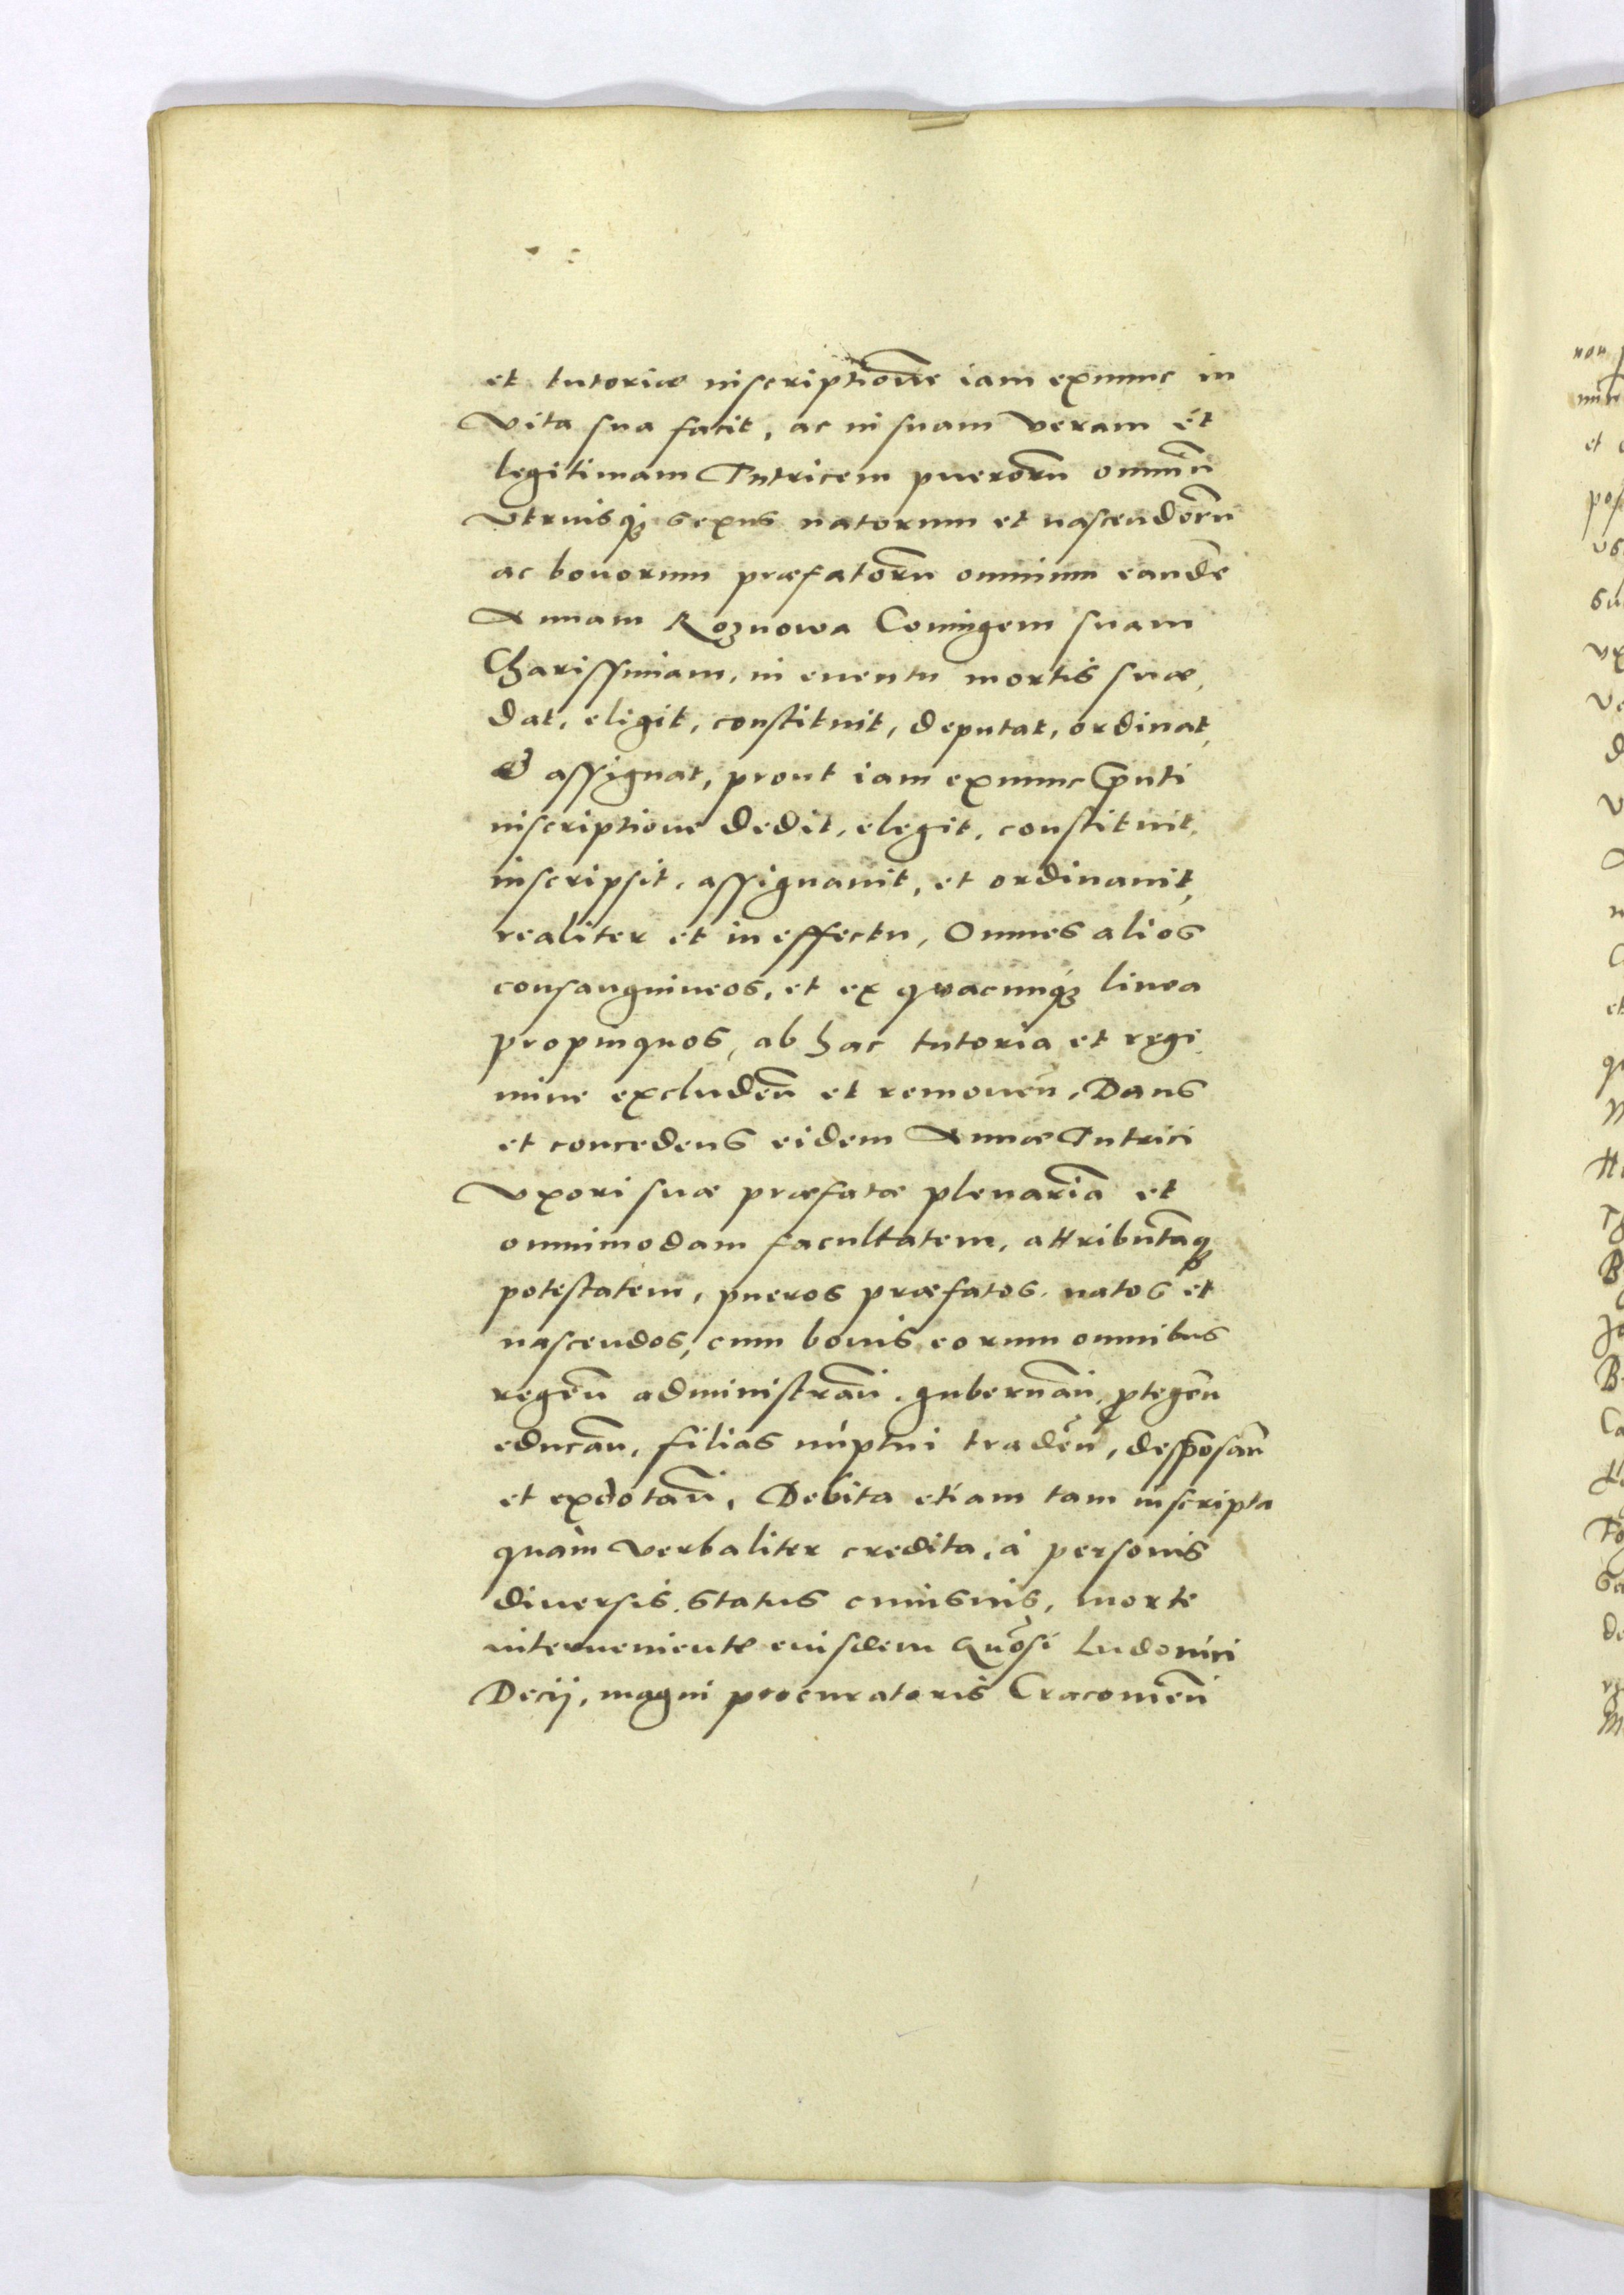 et tutoriæ inscriptione iam exnunc in
vita sua facit, ac in suam veram et
legitimam Tutricem puerorũ omniũ
vtriusq̃ sexus natorum et nascendorũ
ac bonorum præfatorũ omnium eandẽ
Annam Roznowa Coniugem suam
Charissimam, in euentu mortis suæ,
dat, eligit, constituit, deputat, ordinat,
& assignat, prout iam exnunc p̃nti
inscriptione dedit, elegit, constituit,
inscripsit, assignauit, et ordinauit,
realiter et in effectu, Omnes alios
consanguineos, et ex quacunq̃ linea
propinquos, ab hac tutoria et regi
mine excludeñ et remoueñ, Dans
et concedens eidem Annæ Tutrici
vxori suæ præfatæ plenariã et
omnimodam facultatem, attributãq̃
potestatem, pueros præfatos, natos et
nascendos, cum bonis eorum omnibus
regeñ administrañ, gubernañ, ꝓtegeñ
educañ, filias nuptui tradeñ, despõsañ
et exdotañ, Debita etiam tam inscripta
quàm verbaliter credita, à personis
diuersis, status cuiusuis, morte
interueniente eiusdem Gñosi Ludouici
Decij, magni procuratoris Cracouieñ